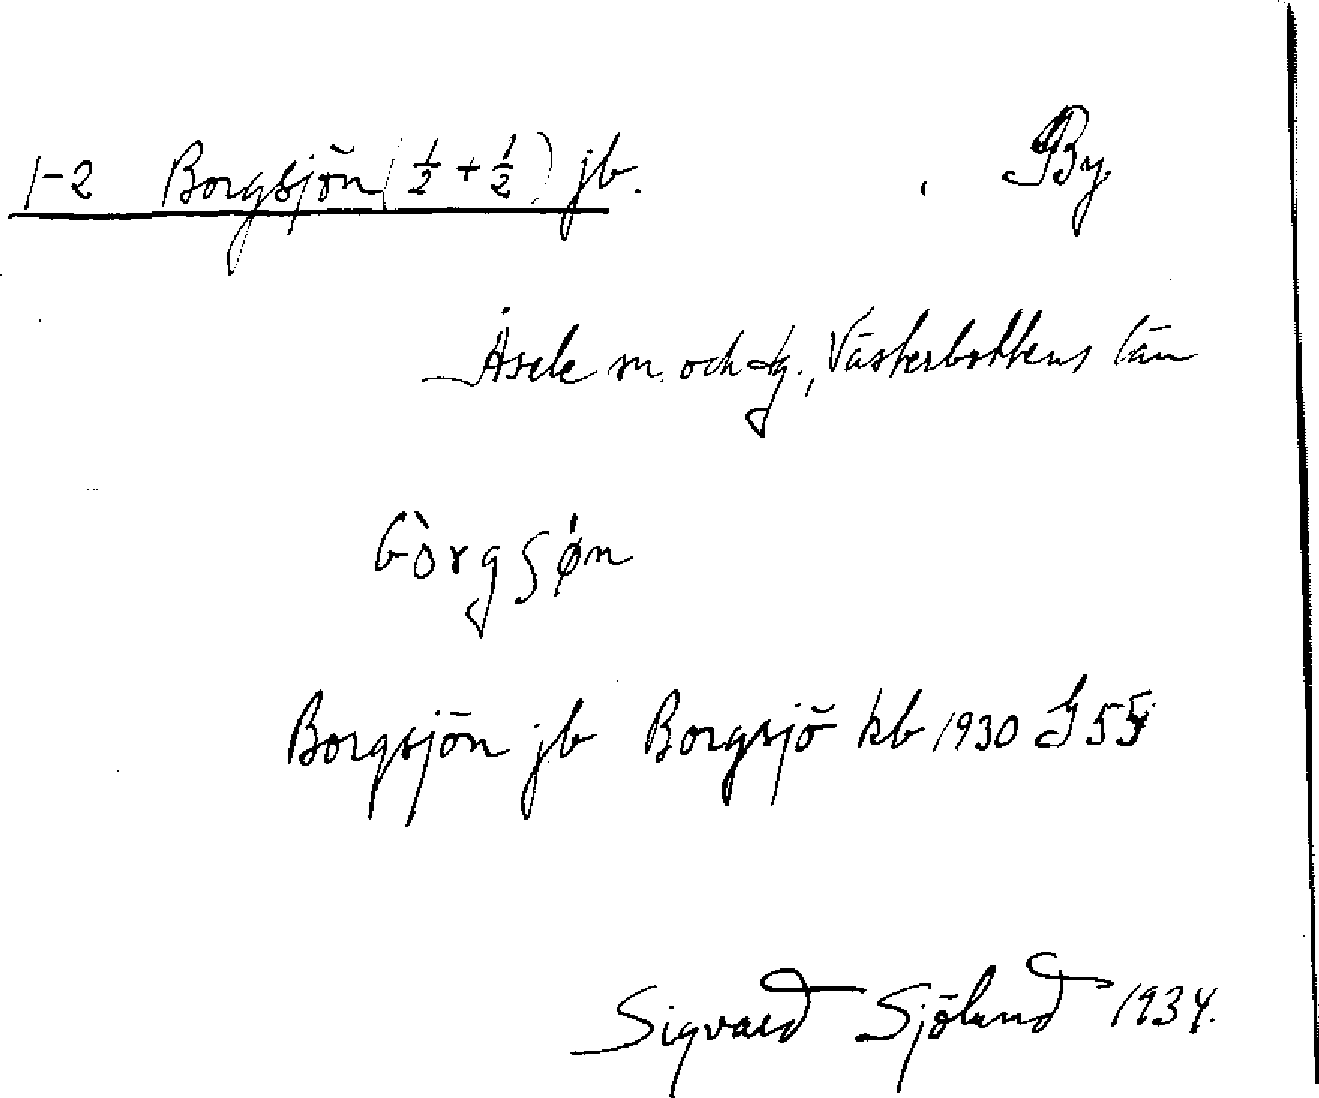 1-2 Borgsjön (½ + ½) jb. By
Åsele sn. och tg., Västerbottens län
bòrgʃǿn
Borgsjön jb Borgsjö kb 1930 I
Sigvard Sjölund 1934.